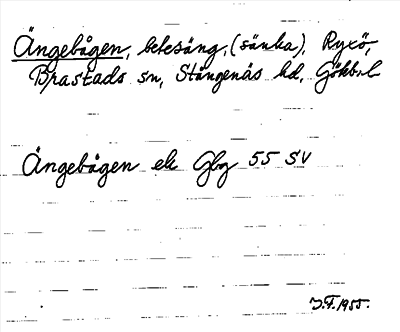 Ängebågen, betesäng, (sänka), Ryxö,
Brastads sn, Stångenäs hd, Gbkbl
Ängebågen ek Gbg 55 SV
J.F. 1955.